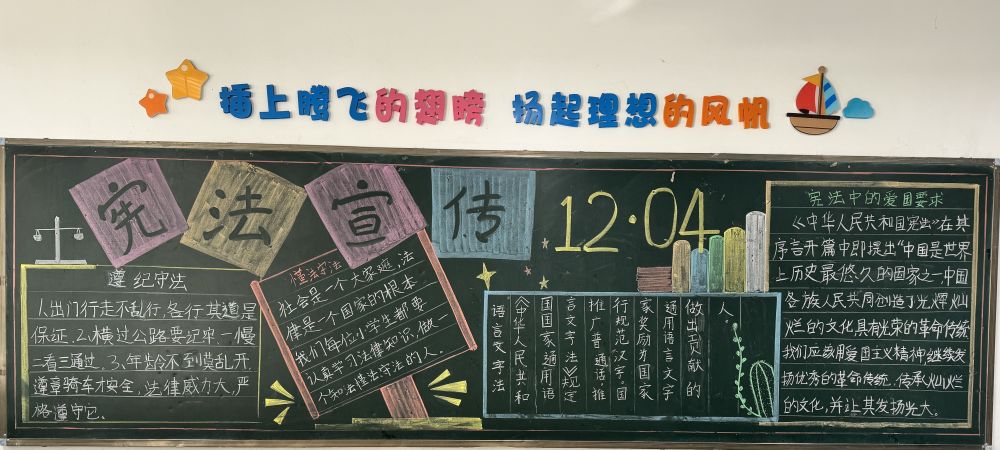 插上腾飞的翅膀 扬起理想的风帆
宪法宣传
12·04
遵纪守法
1.出门行走不乱行,各行其道是
保证,2.横过公路要记牢,一慢
二看三通过,3.年龄不到莫乱开,
遵章骑车才安全,法律威力大,严
格遵守它。
懂法守法
社会是一个大家庭,法
律是一个国家的根本
我们每位小学生都要
认真学习法律知识,做一
个知法懂法守法的人。
语言文字法
《中华人民共和
国国家通用语
言文字法》规定
推广普通话,推
行规范汉字。国
家奖励为国家
通用语言文字
做出贡献的
人。
宪法中的爱国要求
《中华人民共和国宪法》在其
序言开篇中即提出“中国是世界
上历史最悠久的国家之一中国
各族人民共同创造了光辉灿
烂的文化,具有光荣的革命传统
我们应该用爱国主义精神继续发
扬优秀的革命传统,传承灿烂
的文化,并让其发扬光大。